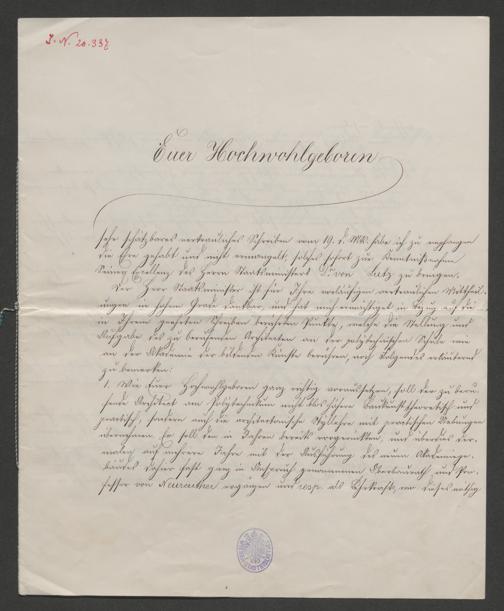 J. N. 20.337
Euer Hochwohlgeboren
sehr schätzbares vertrauliches Schreiben vom 19. d. Mts. habe ich zu empfangen
die Ehre gehabt und nicht ermangelt, solches sofort zur Kenntnißnahme
Seiner Exzellenz des Herrn Staatsministers Dr. von Lutz zu bringen.
Der Herr Staatsminister ist für Ihre vorläufigen vertraulichen Mittheil-
ungen in hohem Grade dankbar, und hat mich ermächtigt in Bezug auf die
in Ihrem geehrten Schreiben berührten Punkte, welche die Stellung und
Aufgabe des zu berufenden Architekten an der polytechnischen Schule wie
an der Akademie der bildenden Künste berühren, noch Folgendes erläuternd
zu bemerken:
1. Wie Euer Hochwohlgeboren ganz richtig voraussetzen, soll der zu beru-
fende Architekt am Polytechnikum nicht blos höhere Baukunst theoretisch und
praktisch, sondern auch die architektonische Styllehre mit praktischen Uebungen
übernehmen. Er soll den in Jahren bereits vorgerückten, und überdies der-
malen auf mehrere Jahre mit der Ausführung des neuen Akademiege-
bäudes daher fast ganz in Anspruch genommenen Oberbaurath und Pro-
fessor von Neureuther ergänzen und resp. als Lehrkraft, wo dieses nöthig